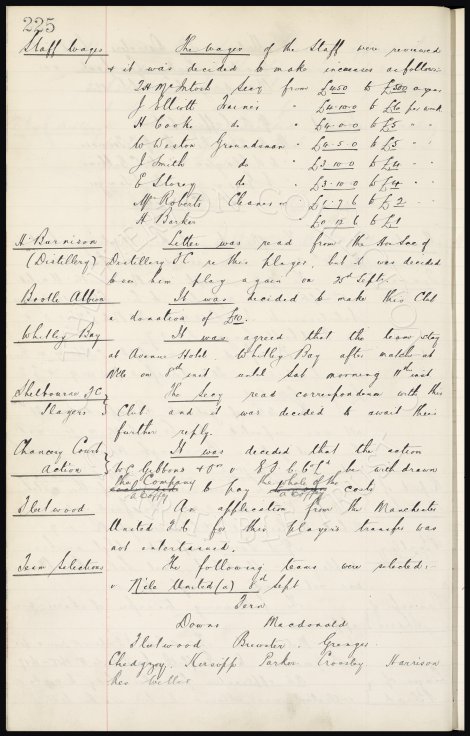 225
Staff Wages The wages of the Staff were reviewed
& it was decided to make increases as follows:-
Secy from £450 to £500 a year
J Elliott Trainer " £4-10-0 to £6 per week
H Cooke " £4-0-0 to £5 " "
C Weston Groundsman " £4-5-0 to £5 " "
J Smith do " £3-10-0 to £4 " "
E Storey do " £3-10-0 to £4 " "
Mrs Roberts Cleaner " to £2 " "
H Barker to £1
H. Barnison Letter was read from the Hon Sec of
(Distillery) Distillery F.C re this player, but it was decided
to see him play again on Sept.
Bootle Albion It was decided to make this Club
a donation of £10.
Whitley Bay It was agreed that the team stay
at Avenue Hotel. Whitley Bay after match at
N'cle on 8th inst until Sat morning 11th inst
Shelbourne F.C The Secy read correspondence with this
Players Club and it was decided to await their
further reply.
Chancery Court It was decided that the action
action W.C Gibbons & Or v E.F.C. Co Ld be withdrawn
the Company to pay the whole of the costs
Fleetwood An application from the Manchester
United F.C for this player's transfer was
not entertained.
Team Selections The following teams were selected:-
v N'cle United (a) 8th Sept
Fern
Downs Macdonald
Fleetwood Brewster. Grenyer
Chedgzoy. Kirsopp Parker Crossley Harrison